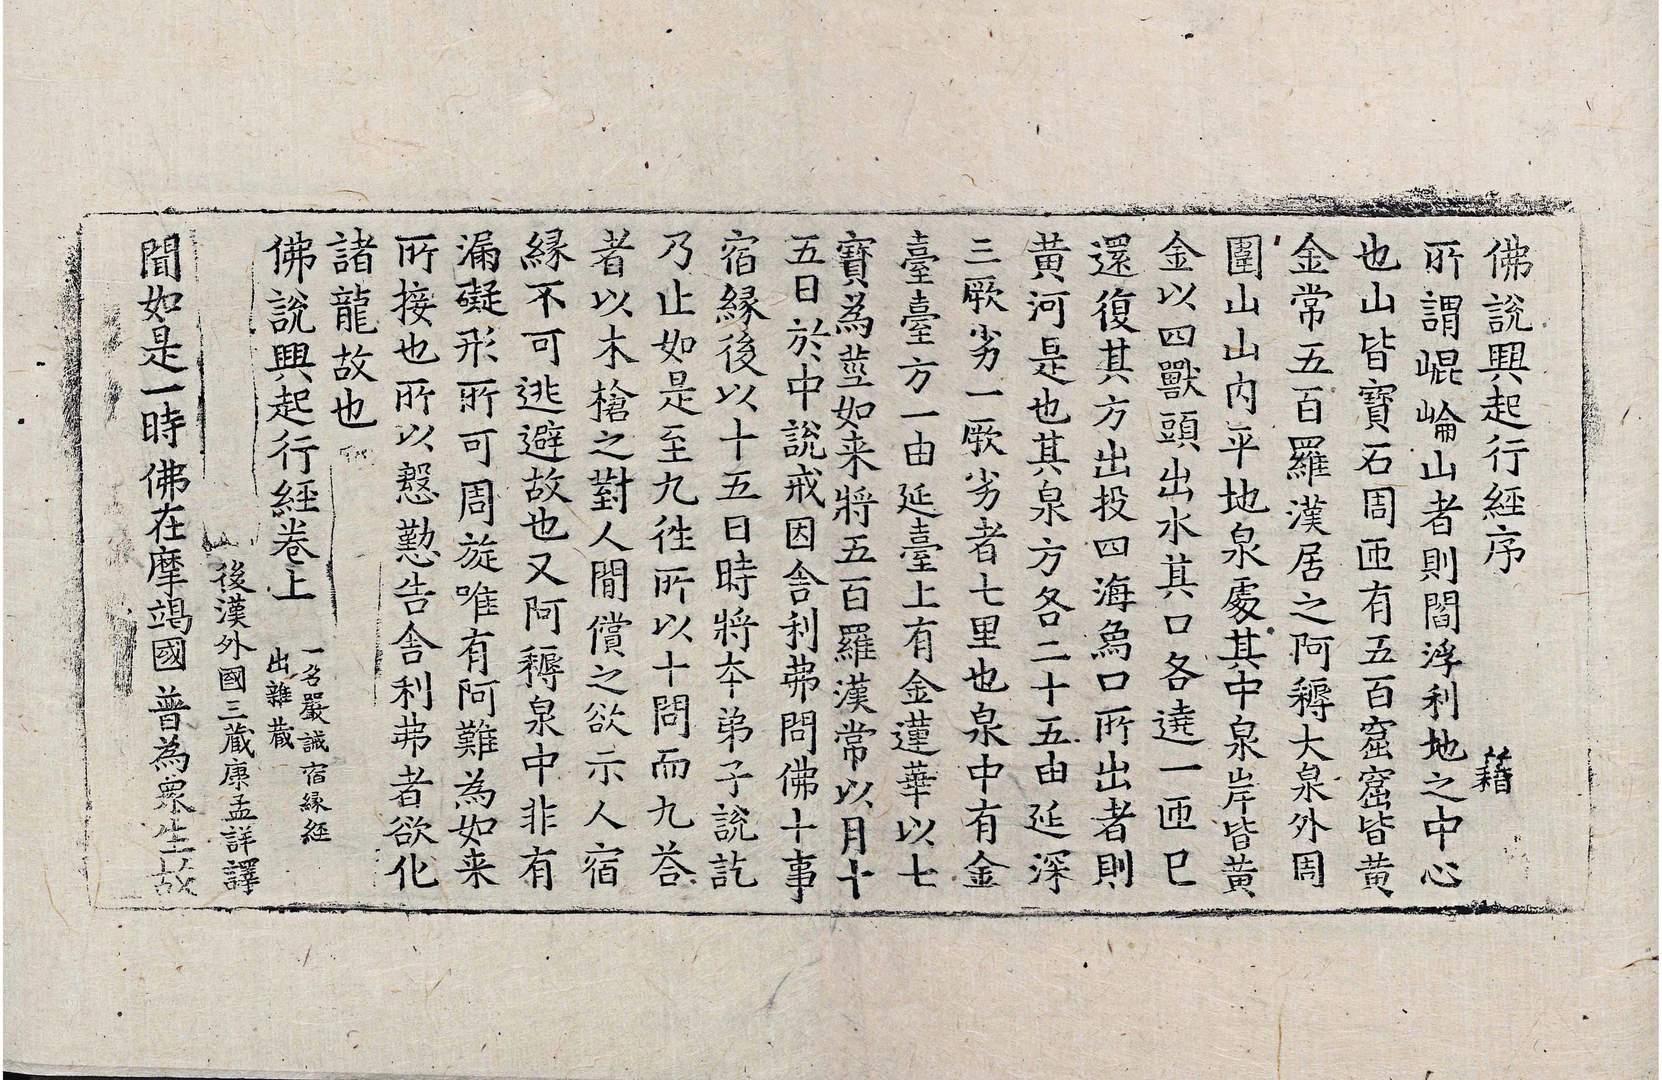 佛說興起行經序
藉
所謂崐崘山者則閻浮利地之中心
也山皆寶石周匝有五百窟窟皆黃
金常五百羅漢居之阿耨大泉外周
圍山山內平地泉處其中泉岸皆黃
金以四獸頭出水其口各遶一匝巳
還復其方出投四海象口所出者則
黃河是也其泉方各二十五由延深
三厥劣一厥劣者七里也泉中有金
臺臺方一由延臺上有金蓮華以七
寶為莖如来將五百羅漢常以月十
五日於中說戒因舍利弗問佛十事
宿緣後以十五日時將本弟子說訖
乃止如是至九往所以十問而九荅
者以木槍之對人間償之欲示人宿
緣不可逃避故也又阿耨泉中非有
漏礙形所可周旋唯有阿難為如来
所接也所以慇懃告舍利弗者欲化
諸龍故也
佛說興起行經卷上
一名嚴誡宿緣經
出雜藏
後漢外國三藏康孟詳譯
聞如是一時佛在摩竭國普為衆生故